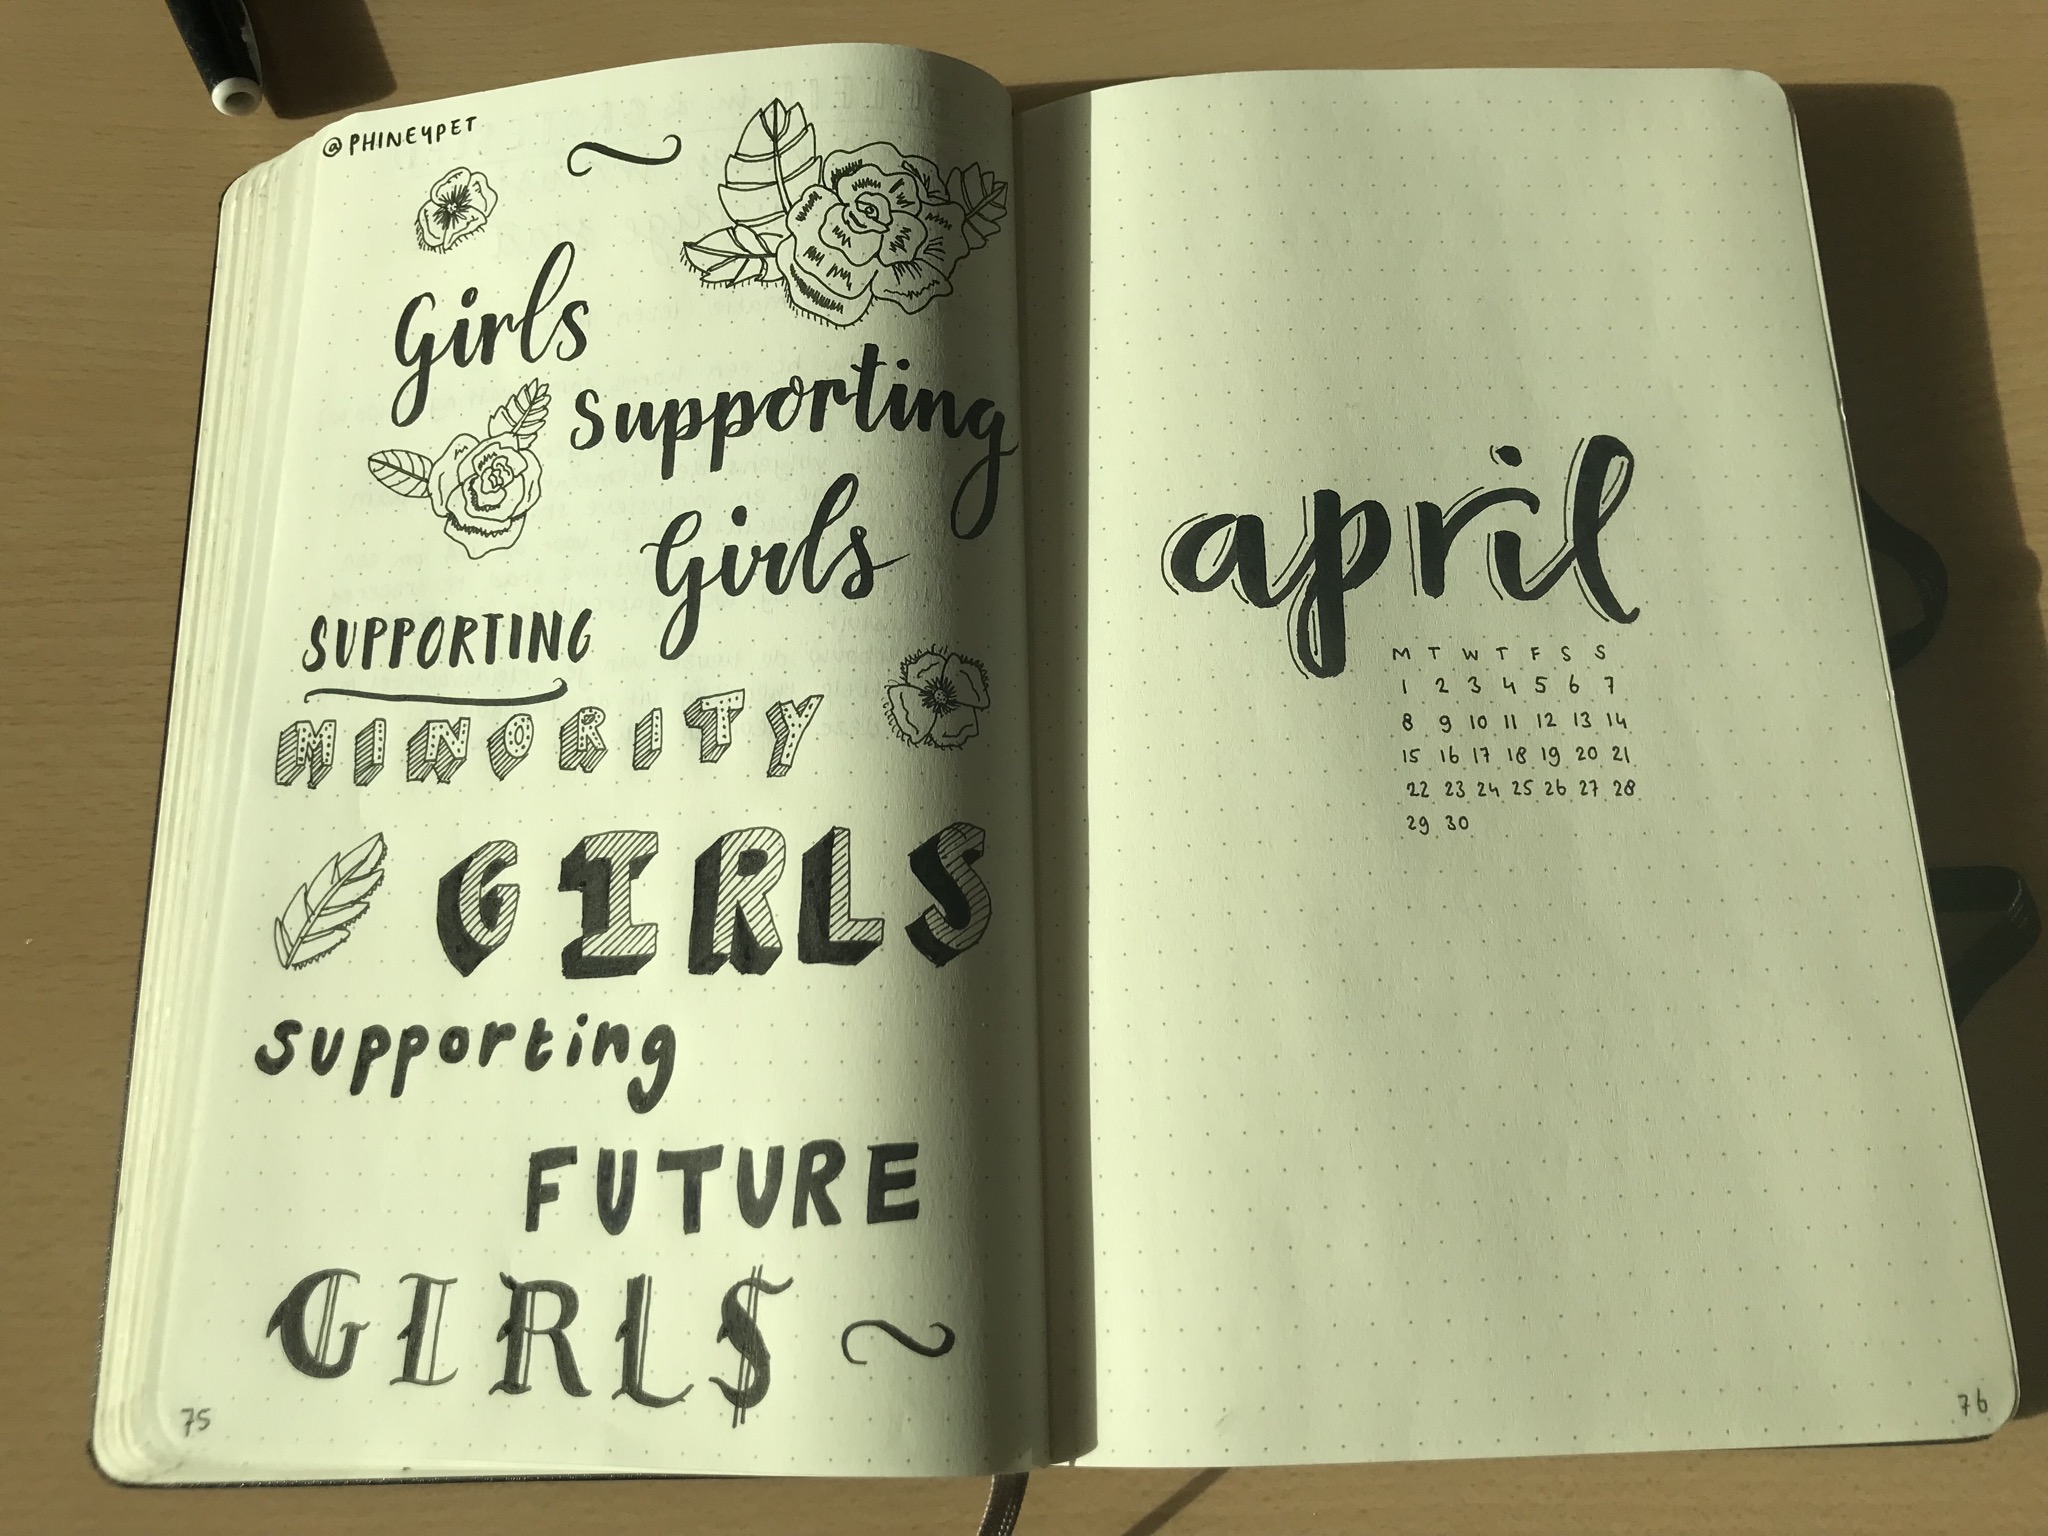 @PHINEYPET
Girls
supporting
Girls
SUPPORTING
MINORITY
GIRLS
supporting
FUTURE
GIRLS
75
april
M T W T F S S
1 2 3 4 5 6 7
8 9 10 11 12 13 14
15 16 17 18 19 20 21
22 23 24 25 26 27 28
29 30
76